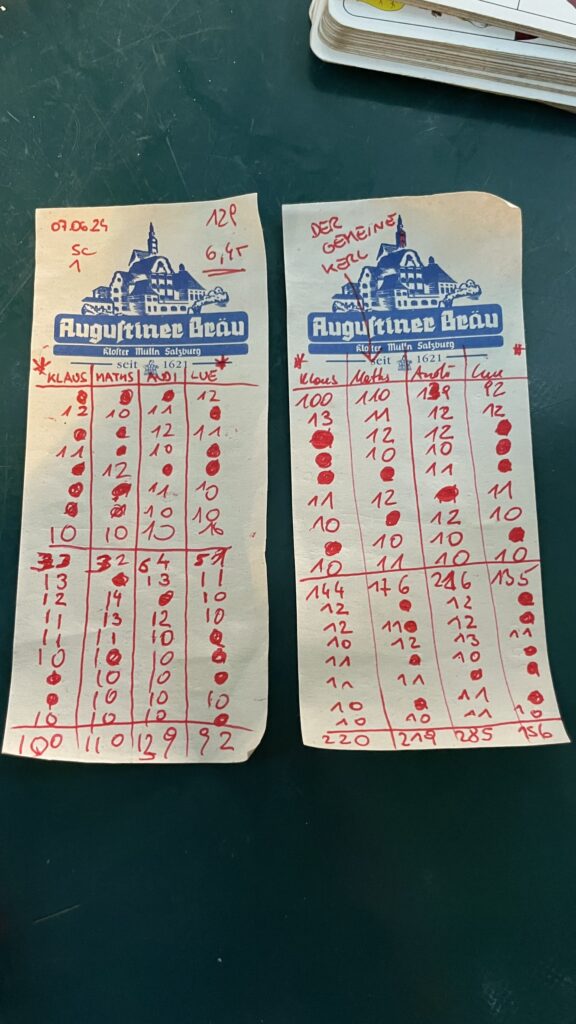 07.06.24 129
SC 6,45
1
Augustiner Bräu
Kloster Mülln Salzburg
seit 1621
* *
KLAUS MATHS ANDI LUE
● ● ● 12
12 10 11 ●
● ● 12 11
11 ● 10 ●
● 12 ● ●
● ● 11 10
● ● 10 10
10 10 10 10
33 32 64 51
13 ● 13 11
12 14 ● 10
11 13 12 10
11 11 10 ●
10 10 ● ●
● 10 10 ●
● 10 10 10
10 10 10 ●
100 110 139 92
DER
GEMEINE
KERL
Augustiner Bräu
Kloster Mülln Salzburg
seit 1621
* *
Klaus Maths Andi Lue
100 110 139 92
13 11 12 12
● 12 12 ●
● 10 10 ●
● ● 11 ●
11 12 ● 11
10 ● 12 10
● 10 10 ●
10 11 10 10
144 176 216 135
12 ● 12 ●
12 11 12 ●
10 12 13 11
11 ● 10 ●
11 11 ● ●
10 ● 11 ●
10 10 11 10
220 219 285 156